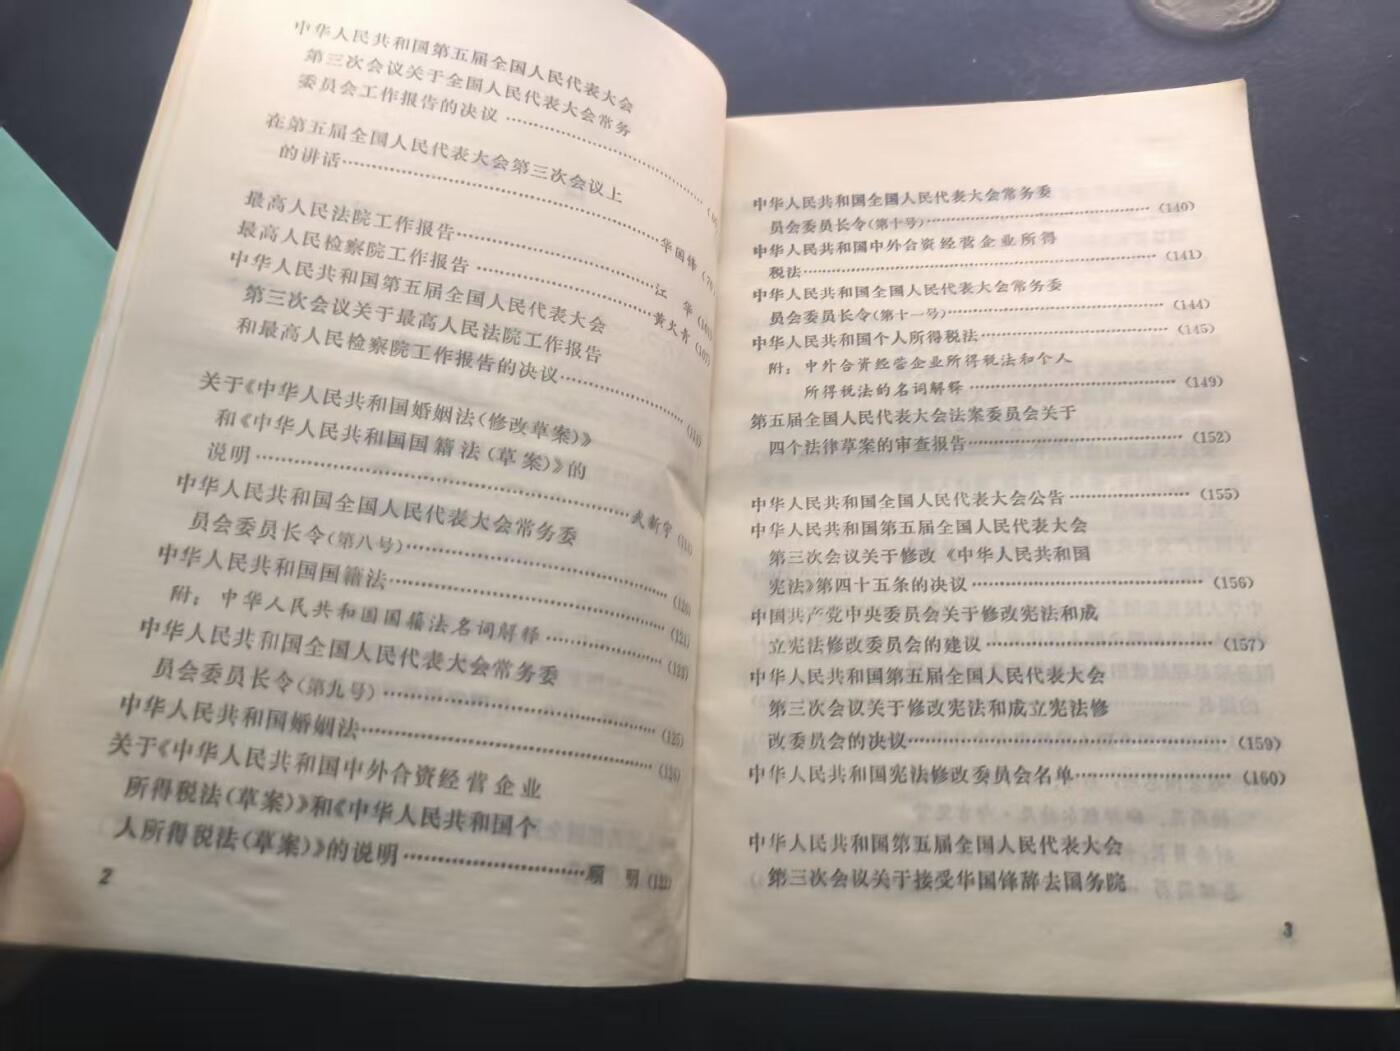 中华人民共和国第五届全国人民代表大会
第三次会议关于全国人民代表大会常务
委员会工作报告的决议
在第五届全国人民代表大会第三次会议上
的讲话 华国锋
最高人民法院工作报告 江 华
最高人民检察院工作报告 黄火青 (107)
中华人民共和国第五届全国人民代表大会
第三次会议关于最高人民法院工作报告
和最高人民检察院工作报告的决议
关于《中华人民共和国婚姻法(修改草案)》
和《中华人民共和国国籍法(草案)》的
说明 武新宇
中华人民共和国全国人民代表大会常务委
员会委员长令(第八号) (120)
中华人民共和国国籍法 (121)
附:中华人民共和国国籍法名词解释 (123)
中华人民共和国全国人民代表大会常务委
员会委员长令(第九号) (125)
中华人民共和国婚姻法 (126)
关于《中华人民共和国中外合资经营企业
所得税法(草案)》和《中华人民共和国个
人所得税法(草案)》的说明 顾 明
2
中华人民共和国全国人民代表大会常务委
员会委员长令(第十号) (140)
中华人民共和国中外合资经营企业所得
税法 (141)
中华人民共和国全国人民代表大会常务委
员会委员长令(第十一号) (144)
中华人民共和国个人所得税法 (145)
附:中外合资经营企业所得税法和个人
所得税法的名词解释 (149)
第五届全国人民代表大会法案委员会关于
四个法律草案的审查报告 (152)
中华人民共和国全国人民代表大会公告 (155)
中华人民共和国第五届全国人民代表大会
第三次会议关于修改《中华人民共和国
宪法》第四十五条的决议 (156)
中国共产党中央委员会关于修改宪法和成
立宪法修改委员会的建议 (157)
中华人民共和国第五届全国人民代表大会
第三次会议关于修改宪法和成立宪法修
改委员会的决议 (159)
中华人民共和国宪法修改委员会名单 (160)
中华人民共和国第五届全国人民代表大会
第三次会议关于接受华国锋辞去国务院
3